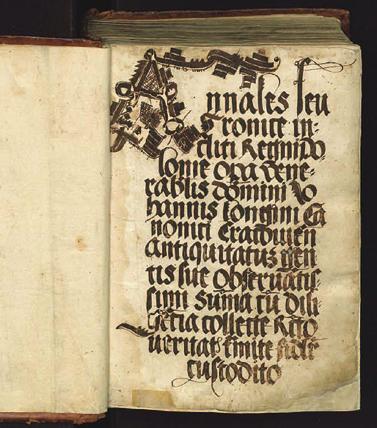 Annales seu
Cronice in-
cliti Regni Po
lonie opa vene-
rabilis domini Io
hannis Longini Ca
nonici Cracovien
antiquitatū gen
tis sue observatis-
simi Suma cū dili-
gētia collecte
veritatē custodito